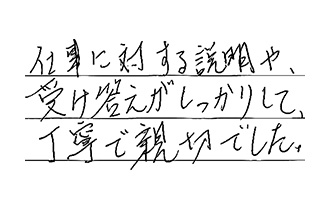 仕事に対する説明や、
受け答えがしっかりして、
丁寧で親切でした。